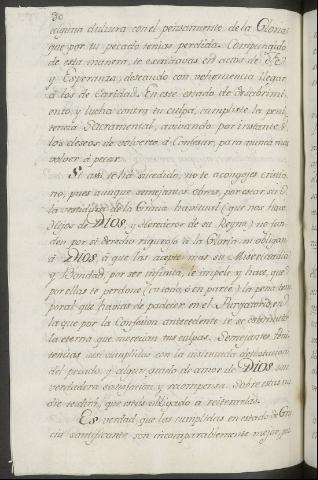 30
alguna dulzura con el pensamiento de la Gloria
que por tu pecado tenias perdida. Compungido
de esta manera, te exercitavas en actos de Fe,
y Esperanza, deseando con vehemencia llegar
à los de Caridad. En este estado de
y lucha contra tu culpa, cumpliste la peni
tencia Sacramental, avivando por instantes
los deseos de volverte à Confesar, para nunca mas
volver à pecar.
Si assi te ha sucedido, no te acongojes cristia
no, pues aunque semejantes obras, por estar sin
la vestidura de la Gracia habitual (que nos hace
Hijos de DIOS, y Herederos de su Reyno) no
den por si derecho riguroso à la Gloria, ni obligan
à DIOS, à que las acepte; mas su Misericordia
y Bondad, por ser infinita, le impele y hace, que
por ellas te perdone (en todo, ò en parte) la pena tem
poral que havias de padecer en el Purgatorio, en
la que por la Confesion antecedente te se
la eterna que merecian tus culpas. Semejantes Peni
tencias assi cumplidas con la
del pecado, y algun grado de amor de DIOS son
verdadera satisfaccion, y recompensa. Sobre estas na
die te dirà, que estás obligado a reiterarlas.
Es verdad, que las cumplidas en estado de Gra
cia santificante son incomparablemente mejor,